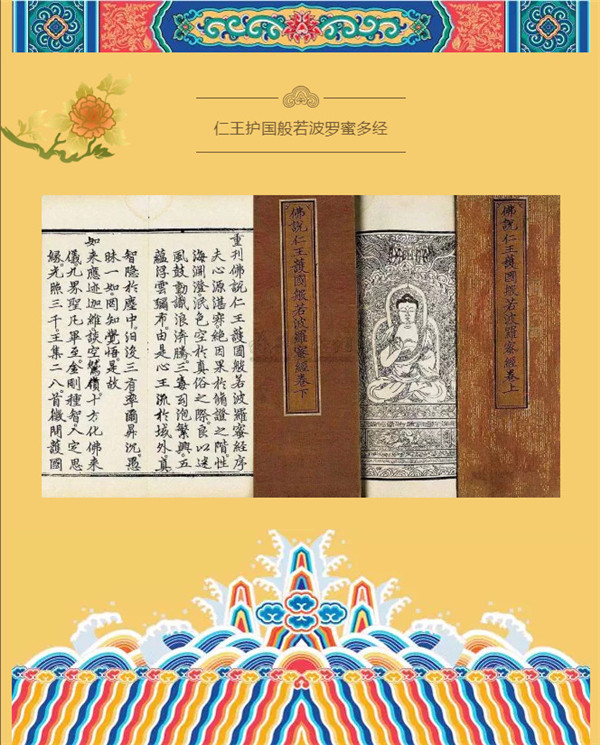 仁王护国般若波罗蜜多经
佛說仁王護國般若波羅蜜經卷上
佛說仁王護國般若波羅蜜經卷下
重刊佛說仁王護國般若波羅蜜經序
夫心源湛寂絶因果於脩證之階性
海澜澄泯色空於真俗之際良以迷
風鼓動識浪濟騰三毒司泡繁興五
蘊浮雲彌布由是心王流於域外真
智隐於塵中汩没三有寧爾昇沉愚
昧一如罔知覺悟是故
如來應迹迦維談空鷲嶺十方化佛來
儀九界聖凡畢至金剛種智入定思
緣光照三千王集二八首微開護國